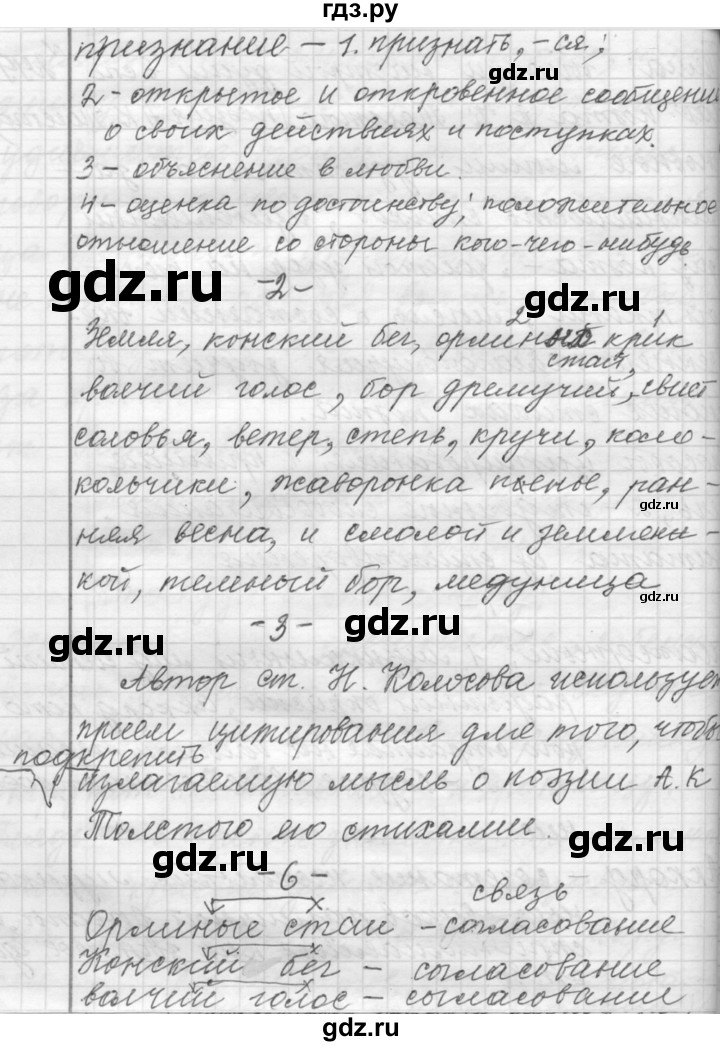 гдз.ру
признание – 1. признать, -ся;
gdz.ru
2 – открытое и откровенное сообщени
о своих действиях и поступках.
gdz.ru
3 – объяснение в любви.
4 – оценка по достоинству; положительное
отношение со стороны кого-чего-нибудь.
gdz.ru
-2-
gdz.ru
2 1
Земля, конский бег, орлин крик
стая,
волчий голос, бор дремучий, свист
соловья, ветер, степь, кручи, коло-
кольчики, жаворонка пенье, ран-
gdz.ru
няя весна, и смолой и земляни-
кой, темный бор, медуница
gdz.ru
-3-
gdz.ru
gdz.ru
Автор ст. Н. Колосова используе
прием цитирования для того, чтобы
подкрепить
gdz.ru
излагаемую мысль о поэзии А.К
Толстого его стихами.
gdz.ru
gdz.ru
-6-
связь
х
Орлиные стаи – согласование
х
Конский бег – согласование
х
волчий голос – согласование
gdz.ru
gdz.ru